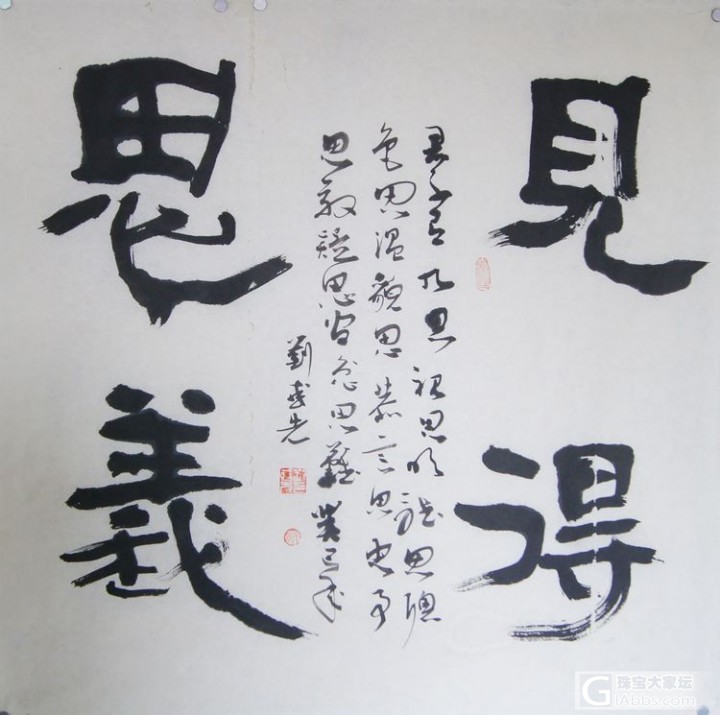 見得
君子有九思視思明聽思聰
色思温貌思恭言思忠事
思敬疑思問忿思難癸巳年
劉先
思義
珠宝大家坛
Glabbs.com